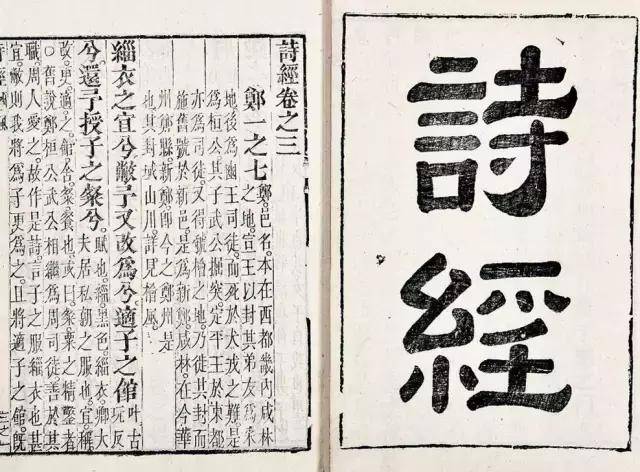 詩經
詩經卷之三
鄭一之七 鄭邑名。本在西都畿內咸林
之地。宣王以封其弟友為采
地。後為幽王司徒。而死於犬戎之難。是
為桓公。其子武公掘突。定平王於東都。
亦為司徒。又得虢檜之地。乃徙其封。而
施舊號於新邑。是為新鄭。咸林。在今華
州鄭縣。新鄭。即今之鄭州。是
也。其封域山川。詳見檜風。
緇衣之宜兮。敝予又改為兮。適子之館 叶古
玩反
兮。還予授子之粲兮。 賦也。緇。黑色。緇衣。卿大
夫居私朝之服也。宜。稱
改。更。適。之。館。舍。粲。餐也。或曰。粲。粟之精鑿者
○舊說鄭桓公武公。相繼為周司徒。善於其
職。周人愛之。故作是詩。言子之服緇衣也。甚
宜。敝則我將為子更為之。且將適子之館。既